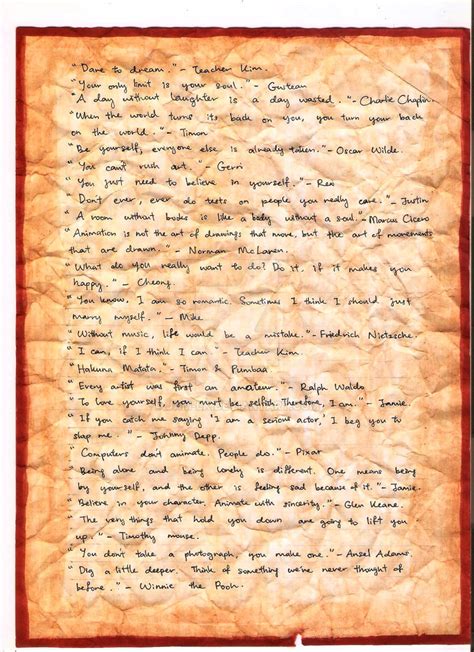 "Dare to dream." - Teacher Kim.
"Your only limit is your soul." - Gusteau
"A day without laughter is a day wasted." - Charlie Chaplin.
"When the world turns its back on you, you turn your back
on the world." - Timon
"Be yourself, everyone else is already taken." - Oscar Wilde.
"You can't rush art." - Gerri
"You just need to believe in yourself." - Rex
Don't ever, ever do tests on people you really care." - Justin
"A room without bodes is like a body without a soul." - Marcus Cicero
"Animation is not the art of drawings that move, but the art of movements
that are drawn." - Norman McLaren.
"What do you really want to do? Do it. If it makes you
happy." - Cheong.
"You know, I am so romantic. Sometimes I think I should just
marry myself." - Mike
"Without music, life would be a mistake." - Friedrich Nietzsche.
"I can, if I think I can." - Teacher Kim.
"Hakuna Matata." - Timon & Pumbaa
"Every artist was first an amateur." - Ralph Waldo
"To love yourself, you must be selfish. Therefore, I am." - Jamie.
"If you catch me saying 'I am a serious actor,' I beg you to
slap me." - Johnny Depp.
"Computers don't animate. People do." - Pixar
"Being alone and being lonely is different. One means being
by yourself, and the other is feeling sad because of it." - Jamie.
"Believe in your character. Animate with sincerity." - Glen Keane.
"The very things that hold you down are going to lift you
up." - Timothy mouse.
"You don't take a photograph, you make one." - Ansel Adams.
"Dig a little deeper. Think of something we've never thought of
before." - Winnie the Pooh.